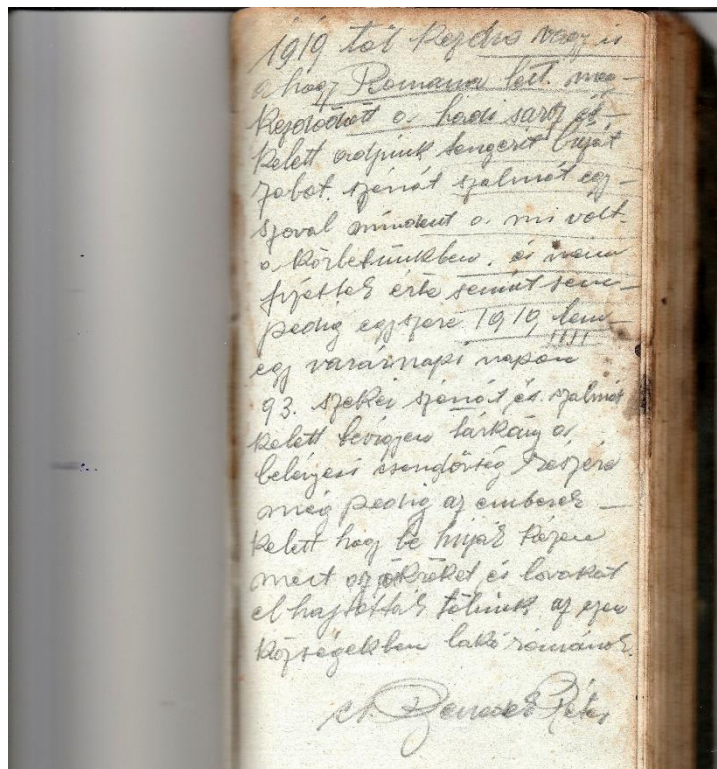 1919 től kezdve vagy is
a hogy Romania lett. meg-
kezdödött a hadi sarcz és
kelett adjunk tengerit buzát
zabot. szénát szalmát egy-
szoval mindent a mi volt.
a körletünkben. és nem
fizettek érte semit sem-
pedig egyszere 1919 ben
egy varárnapi napon
93. szekér szénát és szalmát
kelett bevigyen tárkány a
belényesi csendörség reszére
még pedig az emberek —
kelett hogy be huzák kézen
mert az ökröket és lovakat
el hajtották tölünk az ezen
községekben lakó románok.